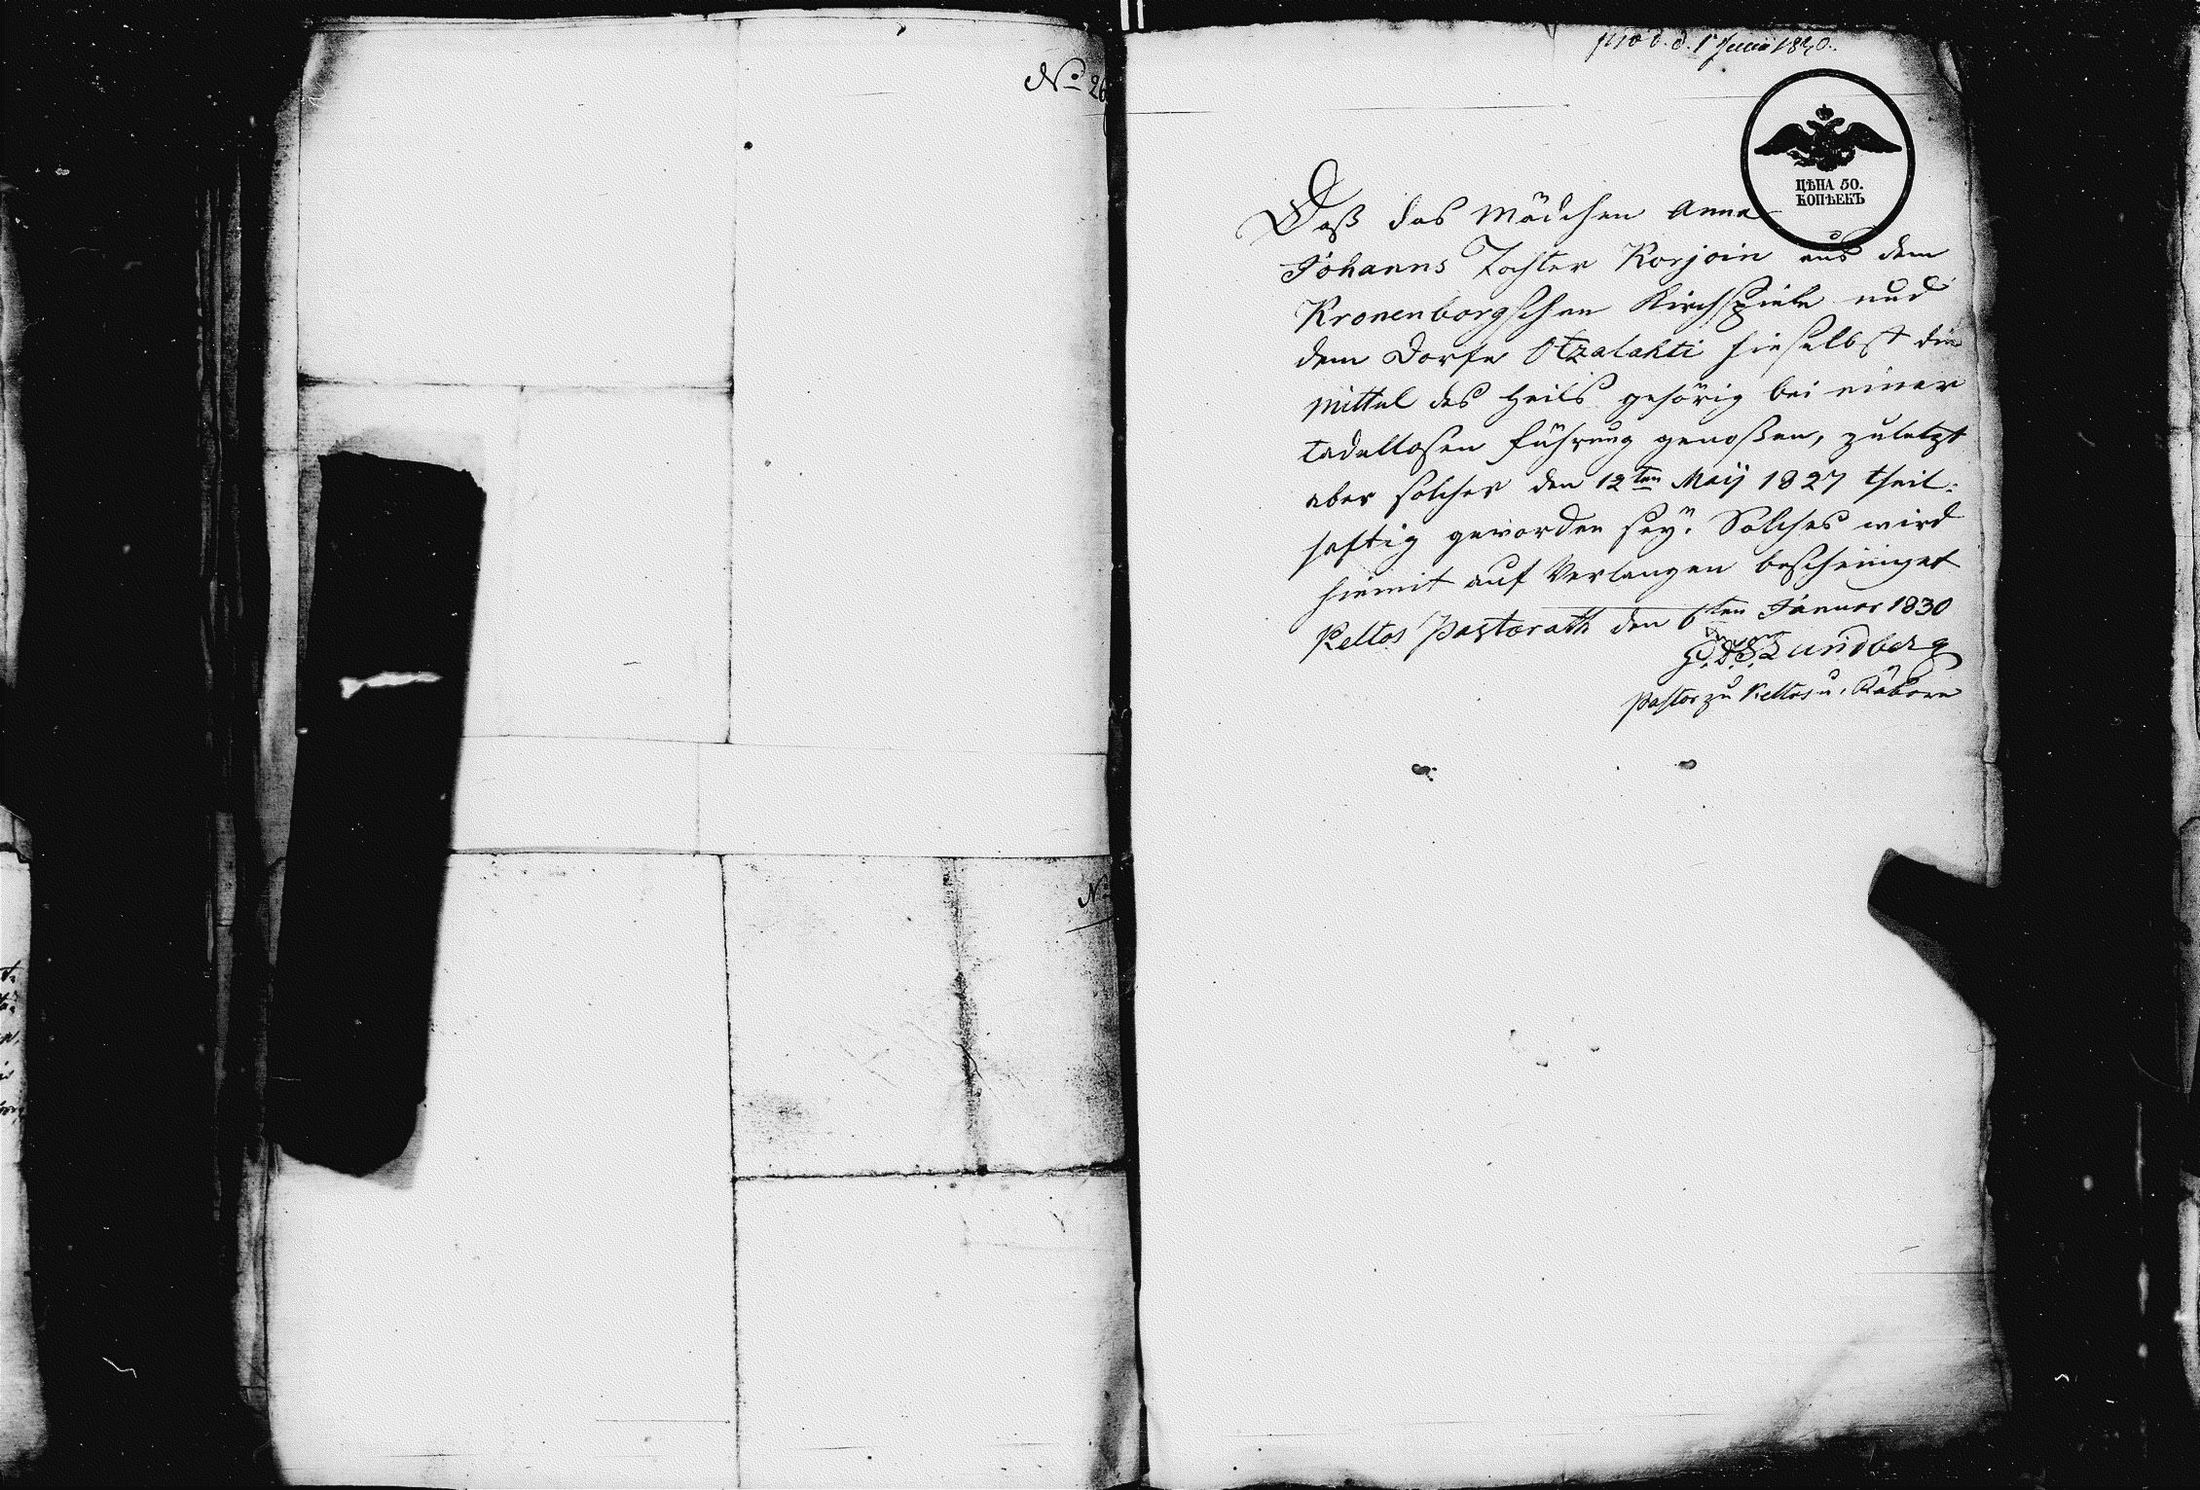 No 26
No
prod. d. 1 Junii 1830.
ЦѢНА 50.
КОПѢЕКЪ
Daß das Mädchen Anna
Johanns Tochter Korjoin aus dem
Kronenborgschen Kirchspiele und
dem Dorfe Otzalahti hieselbst die
Mittel des Heils gehörig bei einer
tadellosen Führung genoßen, zuletzt
aber solcher den 12ten Maij 1827 theil-
haftig geworden sey. Solches wird
hiemit auf Verlangen bescheiniget
Keltos Pastorath den 6ten Januar 1830
Lundberg
Pastor zu Keltos u.